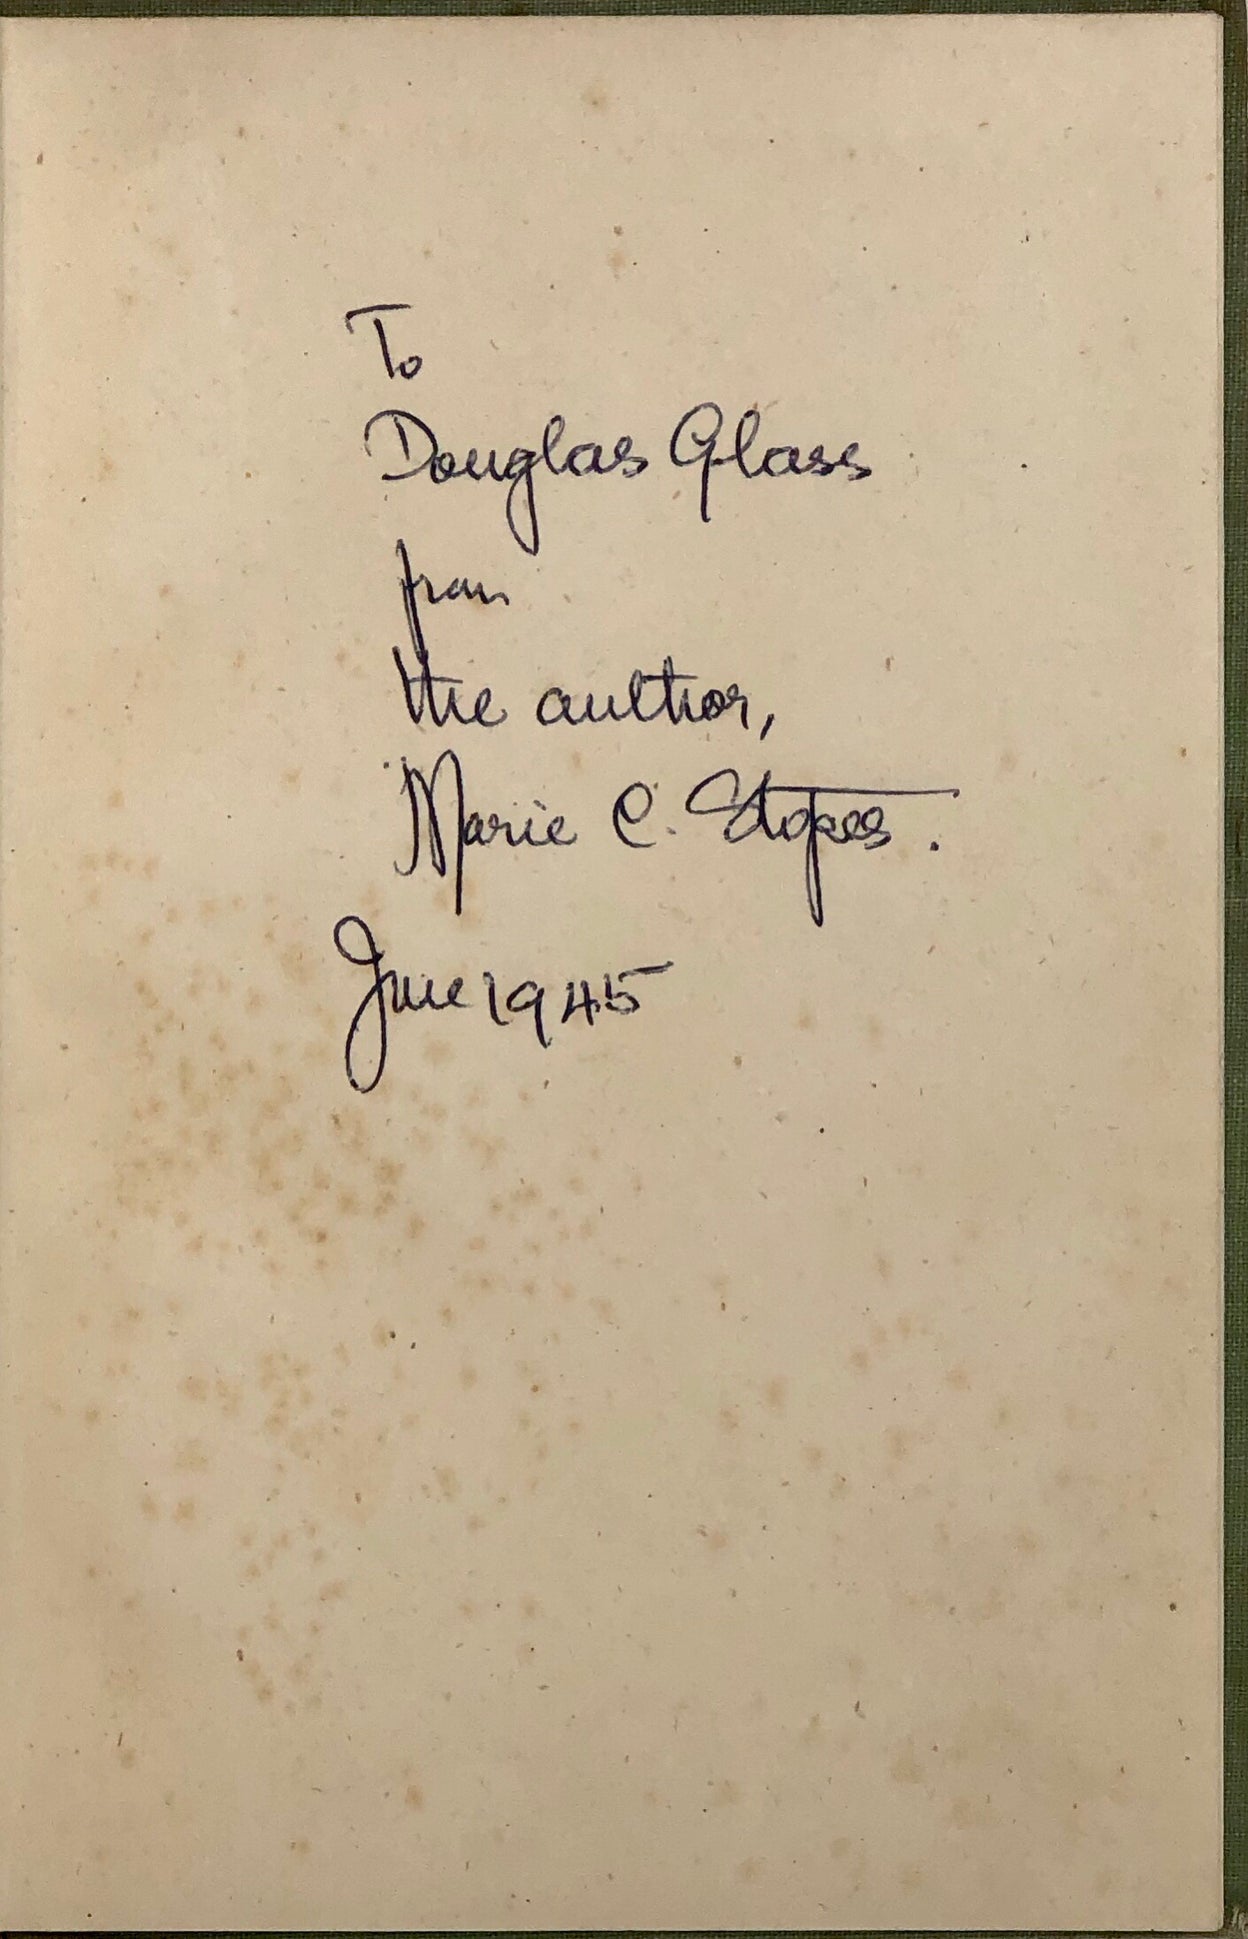 To
Douglas Glass
from
the author,
Marie C. Stopes.
June 1945